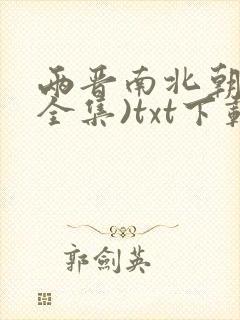 两晋南北朝
全集)txt下载
郭劍英